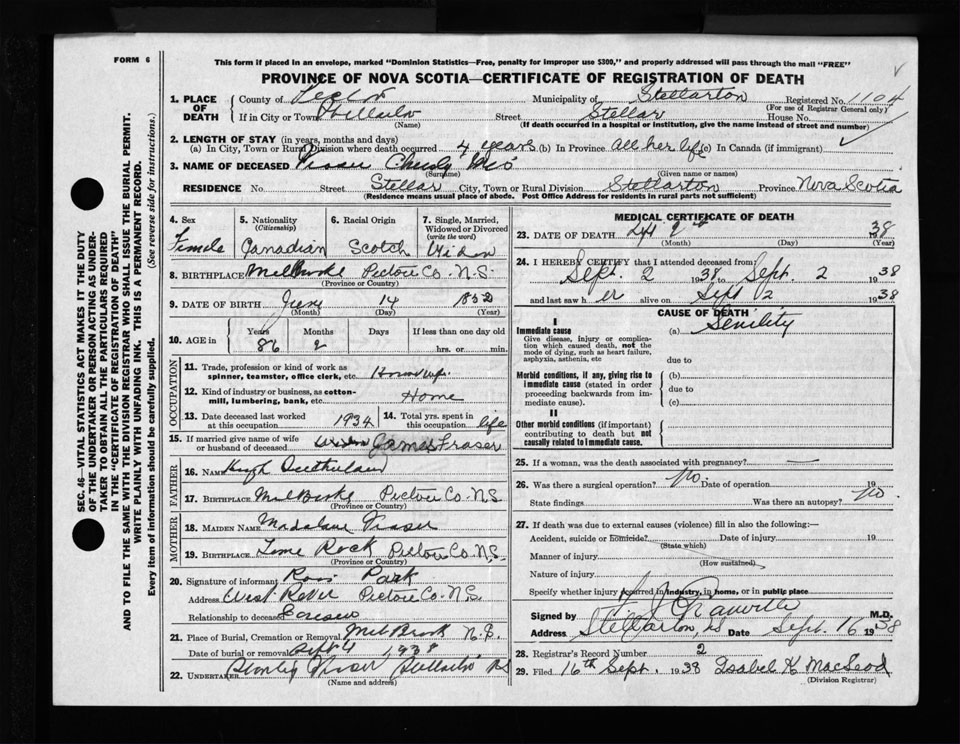 FORM 6
This form if placed in an envelope, marked "Dominion Statistics—Free, penalty for improper use $300," and properly addressed will pass through the mail "FREE"
PROVINCE OF NOVA SCOTIA—CERTIFICATE OF REGISTRATION OF DEATH
1. PLACE OF DEATH
County of
Municipality of Stellarton Registered No. 1104
(For use of Registrar General only)
If in City or Town Street Stellar House No.
(Name) (If death occurred in a hospital or institution, give the name instead of street and number)
2. LENGTH OF STAY (in years, months and days)
(a) In City, Town or Rural Division where death occurred 4 years (b) In Province all her life (c) In Canada (if immigrant)
3. NAME OF DECEASED Fraser
(Surname) (Given name or names)
RESIDENCE No. Street Stellar City, Town or Rural Division Stellarton Province Nova Scotia
(Residence means usual place of abode. Post Office Address for residents in rural parts not sufficient)
SEC. 46—VITAL STATISTICS ACT MAKES IT THE DUTY
OF THE UNDERTAKER OR PERSON ACTING AS UNDER-
TAKER TO OBTAIN ALL THE PARTICULARS REQUIRED
IN THE "CERTIFICATE OF REGISTRATION OF DEATH"
AND TO FILE THE SAME WITH THE DIVISION REGISTRAR WHO SHALL ISSUE THE BURIAL PERMIT.
WRITE PLAINLY WITH UNFADING INK. THIS IS A PERMANENT RECORD.
Every item of information should be carefully supplied. (See reverse side for instructions.)
4. Sex
Female
5. Nationality
(Citizenship)
Canadian
6. Racial Origin
Scotch
7. Single, Married, Widowed or Divorced
(write the word)
Widow
8. BIRTHPLACE Pictou Co. N.S.
(Province or Country)
9. DATE OF BIRTH June 14 1852
(Month) (Day) (Year)
10. AGE in
Years Months Days If less than one day old
86 2 hrs. or min.
OCCUPATION
11. Trade, profession or kind of work as
spinner, teamster, office clerk, etc. Housewife
12. Kind of industry or business, as cotton-
mill, lumbering, bank, etc. Home
13. Date deceased last worked
at this occupation 1934
14. Total yrs. spent in
this occupation life
15. If married give name of wife
or husband of deceased James Fraser
FATHER
16. NAME Hugh Sutherland
17. BIRTHPLACE Pictou Co. N.S.
(Province or Country)
MOTHER
18. MAIDEN NAME Fraser
19. BIRTHPLACE Lime Rock Pictou Co. N.S.
(Province or Country)
20. Signature of informant Ross Park
Address West River Pictou Co. N.S.
Relationship to deceased
21. Place of Burial, Cremation or Removal N.S.
Date of burial or removal Sept 4 1938
22. UNDERTAKER Fraser Stellarton NS
(Name and address)
MEDICAL CERTIFICATE OF DEATH
23. DATE OF DEATH 1938
(Month) (Day) (Year)
24. I HEREBY CERTIFY that I attended deceased from
Sept. 2 1938 Sept. 2 1938
and last saw her alive on Sept 2 1938
CAUSE OF DEATH
I
Immediate cause
Give disease, injury or complica-
tion which caused death, not the
mode of dying, such as heart failure,
asphyxia, asthenia, etc
(a) Senility
due to
Morbid conditions, if any, giving rise to
immediate cause (stated in order
proceeding backwards from im-
mediate cause).
(b)
due to
(c)
II
Other morbid conditions (if important)
contributing to death but not
causally related to immediate cause.
25. If a woman, was the death associated with pregnancy? —
26. Was there a surgical operation? no. Date of operation 19
State findings Was there an autopsy? no.
27. If death was due to external causes (violence) fill in also the following:—
Accident, suicide or homicide? Date of injury 19
(State which)
Manner of injury
(How sustained)
Nature of injury
Specify whether injury occurred in industry, in home, or in public place
Signed by M.D.
Address Stellarton, NS Date Sept. 16 1938
28. Registrar's Record Number 2
29. Filed 16th Sept. 1938 Isabel K MacLeod
(Division Registrar)